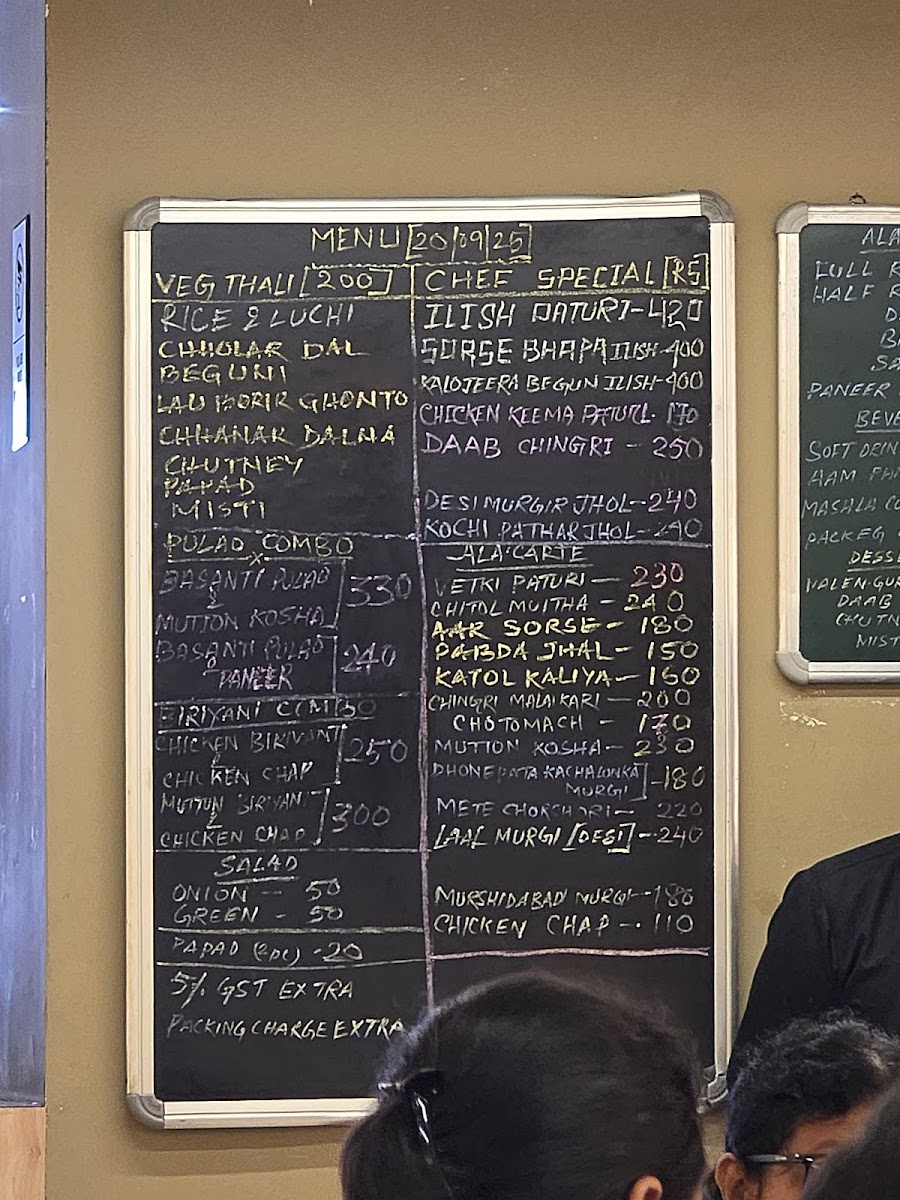 MENU [20/09/25]
VEG THALI [200]
RICE & LUCHI
CHHOLAR DAL
BEGUNI
LAU BORIR GHONTO
CHHANAR DALNA
CHUTNEY
PAPAD
MISTI
PULAO COMBO
BASANTI PULAO
&
MUTTON KOSHA
330
BASANTI PULAO
&
PANEER
240
BIRIYANI COMBO
CHICKEN BIRIYANI
&
CHICKEN CHAP
250
MUTTON BIRIYANI
&
CHICKEN CHAP
300
SALAD
ONION - 50
GREEN - 50
PAPAD (2PC) - 20
5% GST EXTRA
PACKING CHARGE EXTRA
CHEF SPECIAL [RS]
ILISH PATURI - 420
SORSE BHAPA ILISH - 400
KALOJEERA BEGUN ILISH - 400
CHICKEN KEEMA PATURI - 170
DAAB CHINGRI - 250
DESI MURGIR JHOL - 240
KOCHI PATHAR JHOL - 290
ALA'CARTE
VETKI PATURI - 230
CHITOL MUITHA - 240
AAR SORSE - 180
PABDA JHAL - 150
KATOL KALIYA - 160
CHINGRI MALAIKARI - 200
CHOTOMACH - 170
MUTTON KOSHA - 230
DHONEPATA KACHALONKA
MURGI ] - 180
METE CHORCHORI - 220
LAAL MURGI [DESI] - 240
MURSHIDABAD MURGI - 180
CHICKEN CHAP - 110
ALA
FULL
HALF
PANEER
BEVE
SOFT DRIN
AAM PAN
MASALA CO
DESSE
NALEN GUR
DAAB
CHUTN
MIST